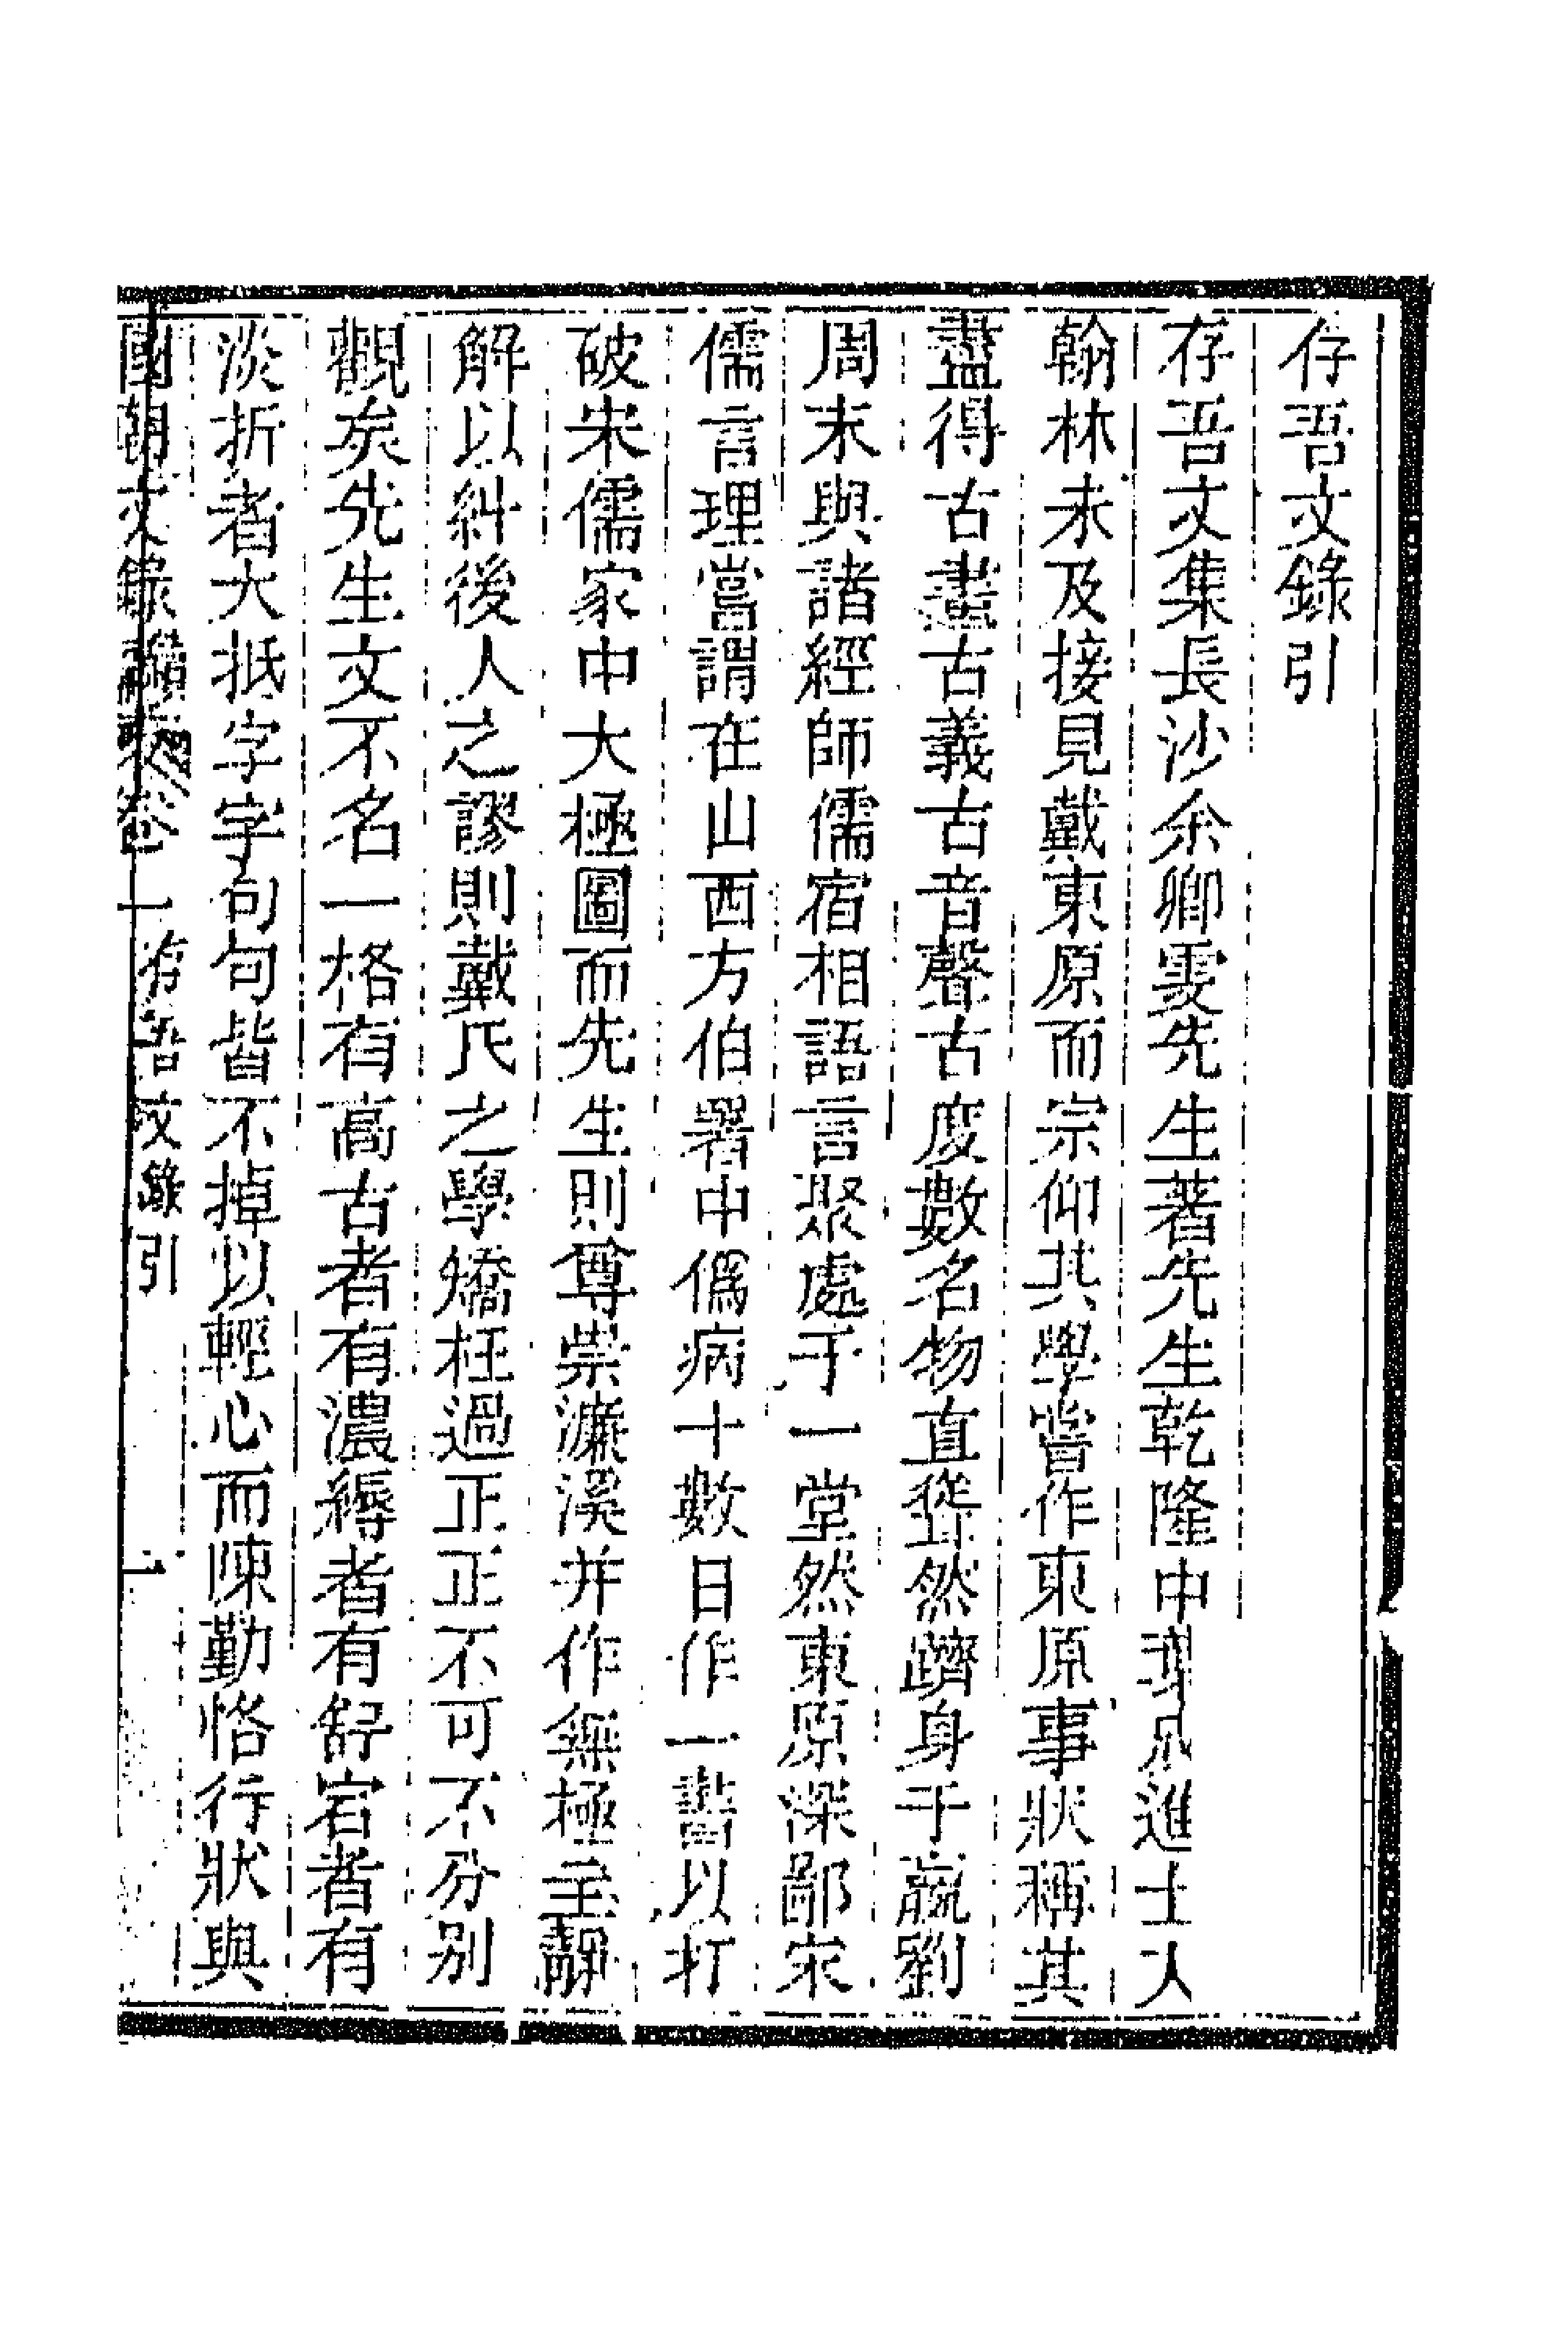 存吾文錄引
存吾文集長沙余卿雯先生著先生乾隆中進士入
翰林未及接見戴東原而宗仰其學嘗作東原事狀稱其
盡得古畫古義古音聲古度數名物直聳然躋身于嬴劉
周末與諸經師儒宿相語言聚處于一堂然東原深鄙宋
儒言理嘗謂在山西方伯署中僞病十數日作一書以打
破宋儒家中大極圖而先生則尊崇濂溪并作無極主靜
解以糾後人之謬則戴氏之學矯枉過正正不可不分别
觀矣先生文不名一格有高古者有濃縟者有舒宕者有
淡折者大抵字字句句皆不掉以輕心而陳勤恪行狀與
國朝文錄續編卷一 存吾文錄引 一